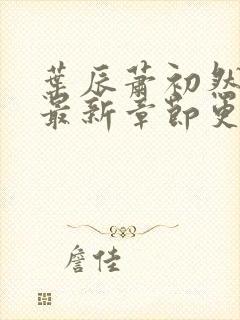 葉辰蕭初然
最新章節更
詹佳